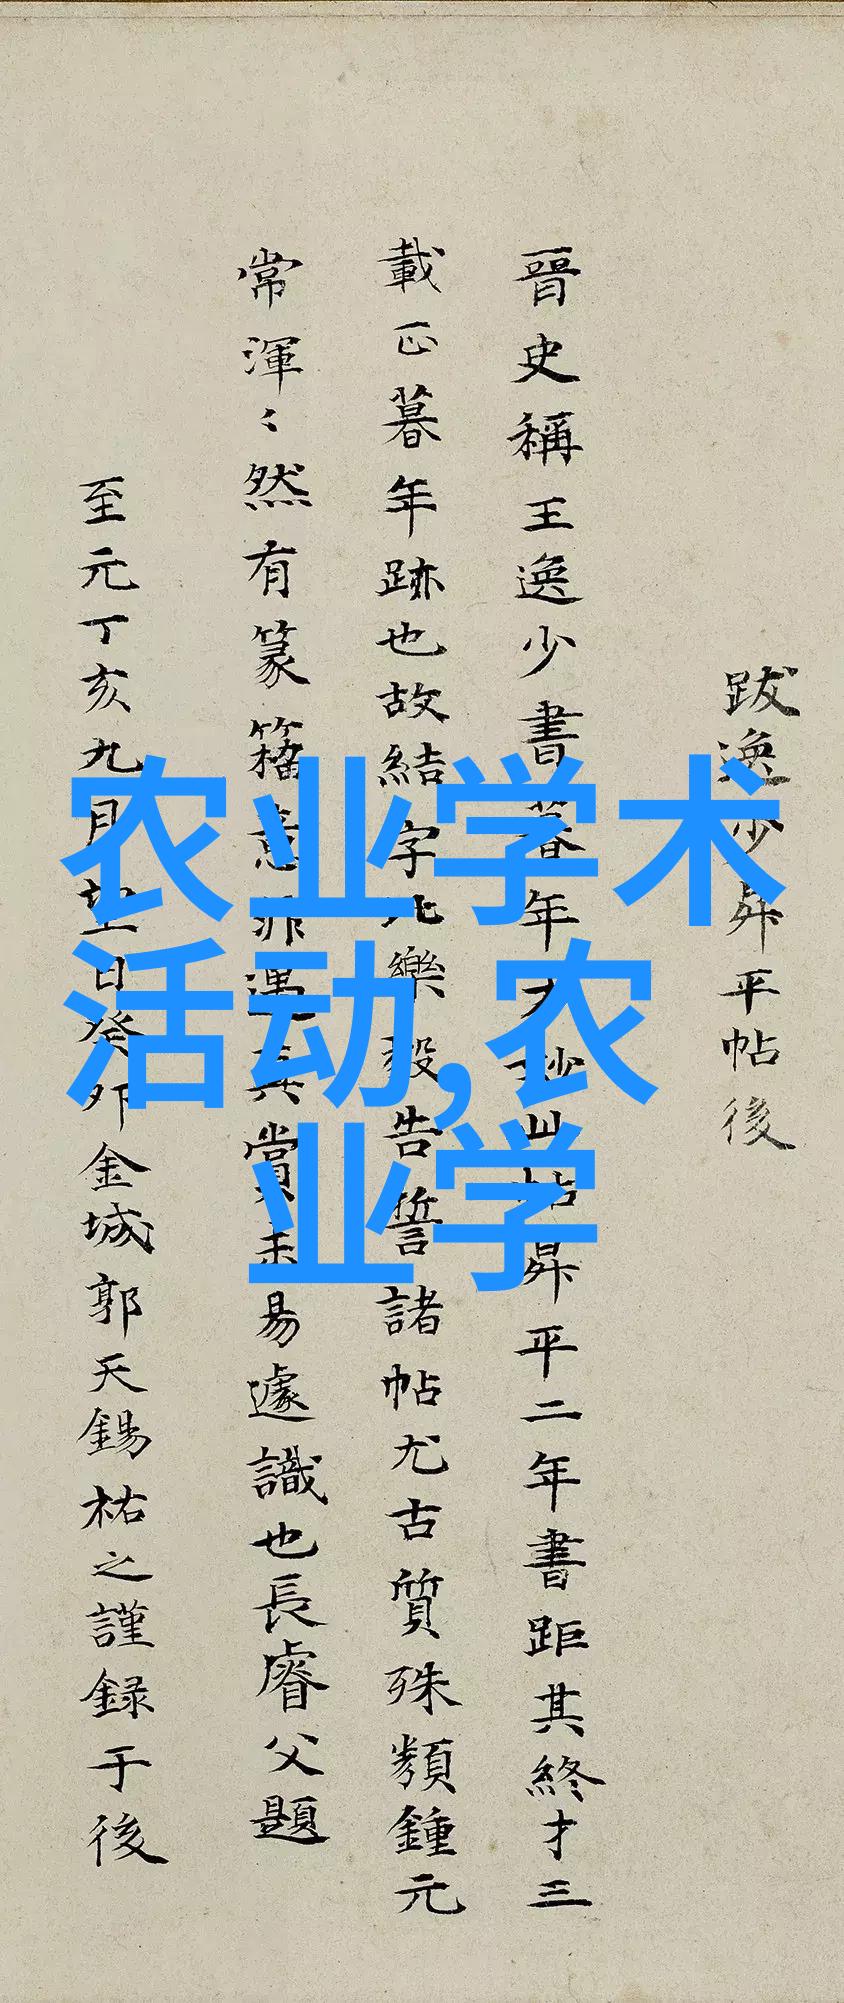 跋逸少昇平帖後
晉史稱王逸少書暮年方妙此帖昇平二年書距其終才三
載正暮年跡也故結字比樂毅告誓諸帖尤古質殊類鍾元
常渾〻然有篆籀意非遇真賞未易遽識也長睿父題
至元丁亥九月望日癸卯金城郭天錫祐之謹録于後
农业学术
活动,农
业学